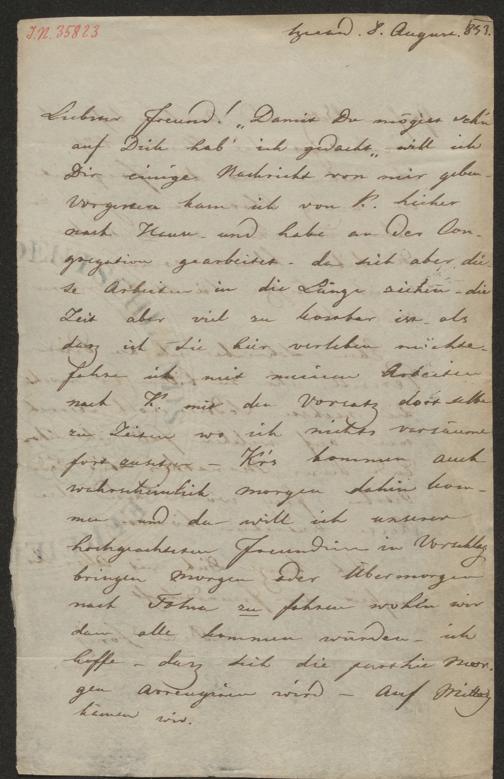 I.N. 35823
8. August. 853.
Liebster Freund! "Damit Du mögest sehn
auf Dich hab' ich gedacht" will ich
Dir einige Nachricht von mir geben.
Vorgestern kam ich von K. hieher
nach Hause - und habe an der Con-
gregation gearbeitet - da sich aber die-
se Arbeiten in die Länge ziehen - die
Zeit aber viel zu kostbar ist - als
dasz ich sie hier verleben möchte -
fahre ich mit meinen Arbeiten
nach K. mit den Vorsatz dortselbst
zu Zeiten wo ich nichts versäume
fortzusetzen - K's kommen auch
wahrscheinlich morgen dahin kom-
men und da will ich unserer
hochgeachteten Freundin in Vorschlag
bringen Morgen oder Übermorgen
nach zu fahren wohin wir
dann alle kommen würden - ich
hoffe - dasz sich die parthie Mor-
gen arrengiren wird - Auf Mittag
kämen wir.